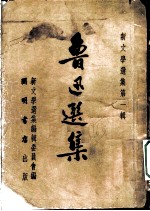 新文學選集第一輯
魯迅選集
新文學選集編輯委員會編
開明書店出版